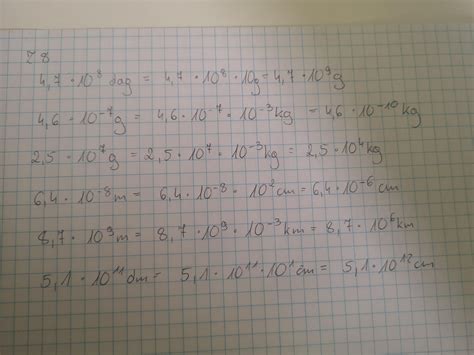 Z 8
4,7 · 10⁸ dag = 4,7 · 10⁸ · 10g = 4,7 · 10⁹ g
4,6 · 10⁻⁷ g = 4,6 · 10⁻⁷ · 10⁻³ kg = 4,6 · 10⁻¹⁰ kg
2,5 · 10⁷ g = 2,5 · 10⁷ · 10⁻³ kg = 2,5 · 10⁴ kg
6,4 · 10⁻⁸ m = 6,4 · 10⁻⁸ · 10² cm = 6,4 · 10⁻⁶ cm
8,7 · 10⁹ m = 8,7 · 10⁹ · 10⁻³ km = 8,7 · 10⁶ km
5,1 · 10¹¹ dm = 5,1 · 10¹¹ · 10¹ cm = 5,1 · 10¹² cm